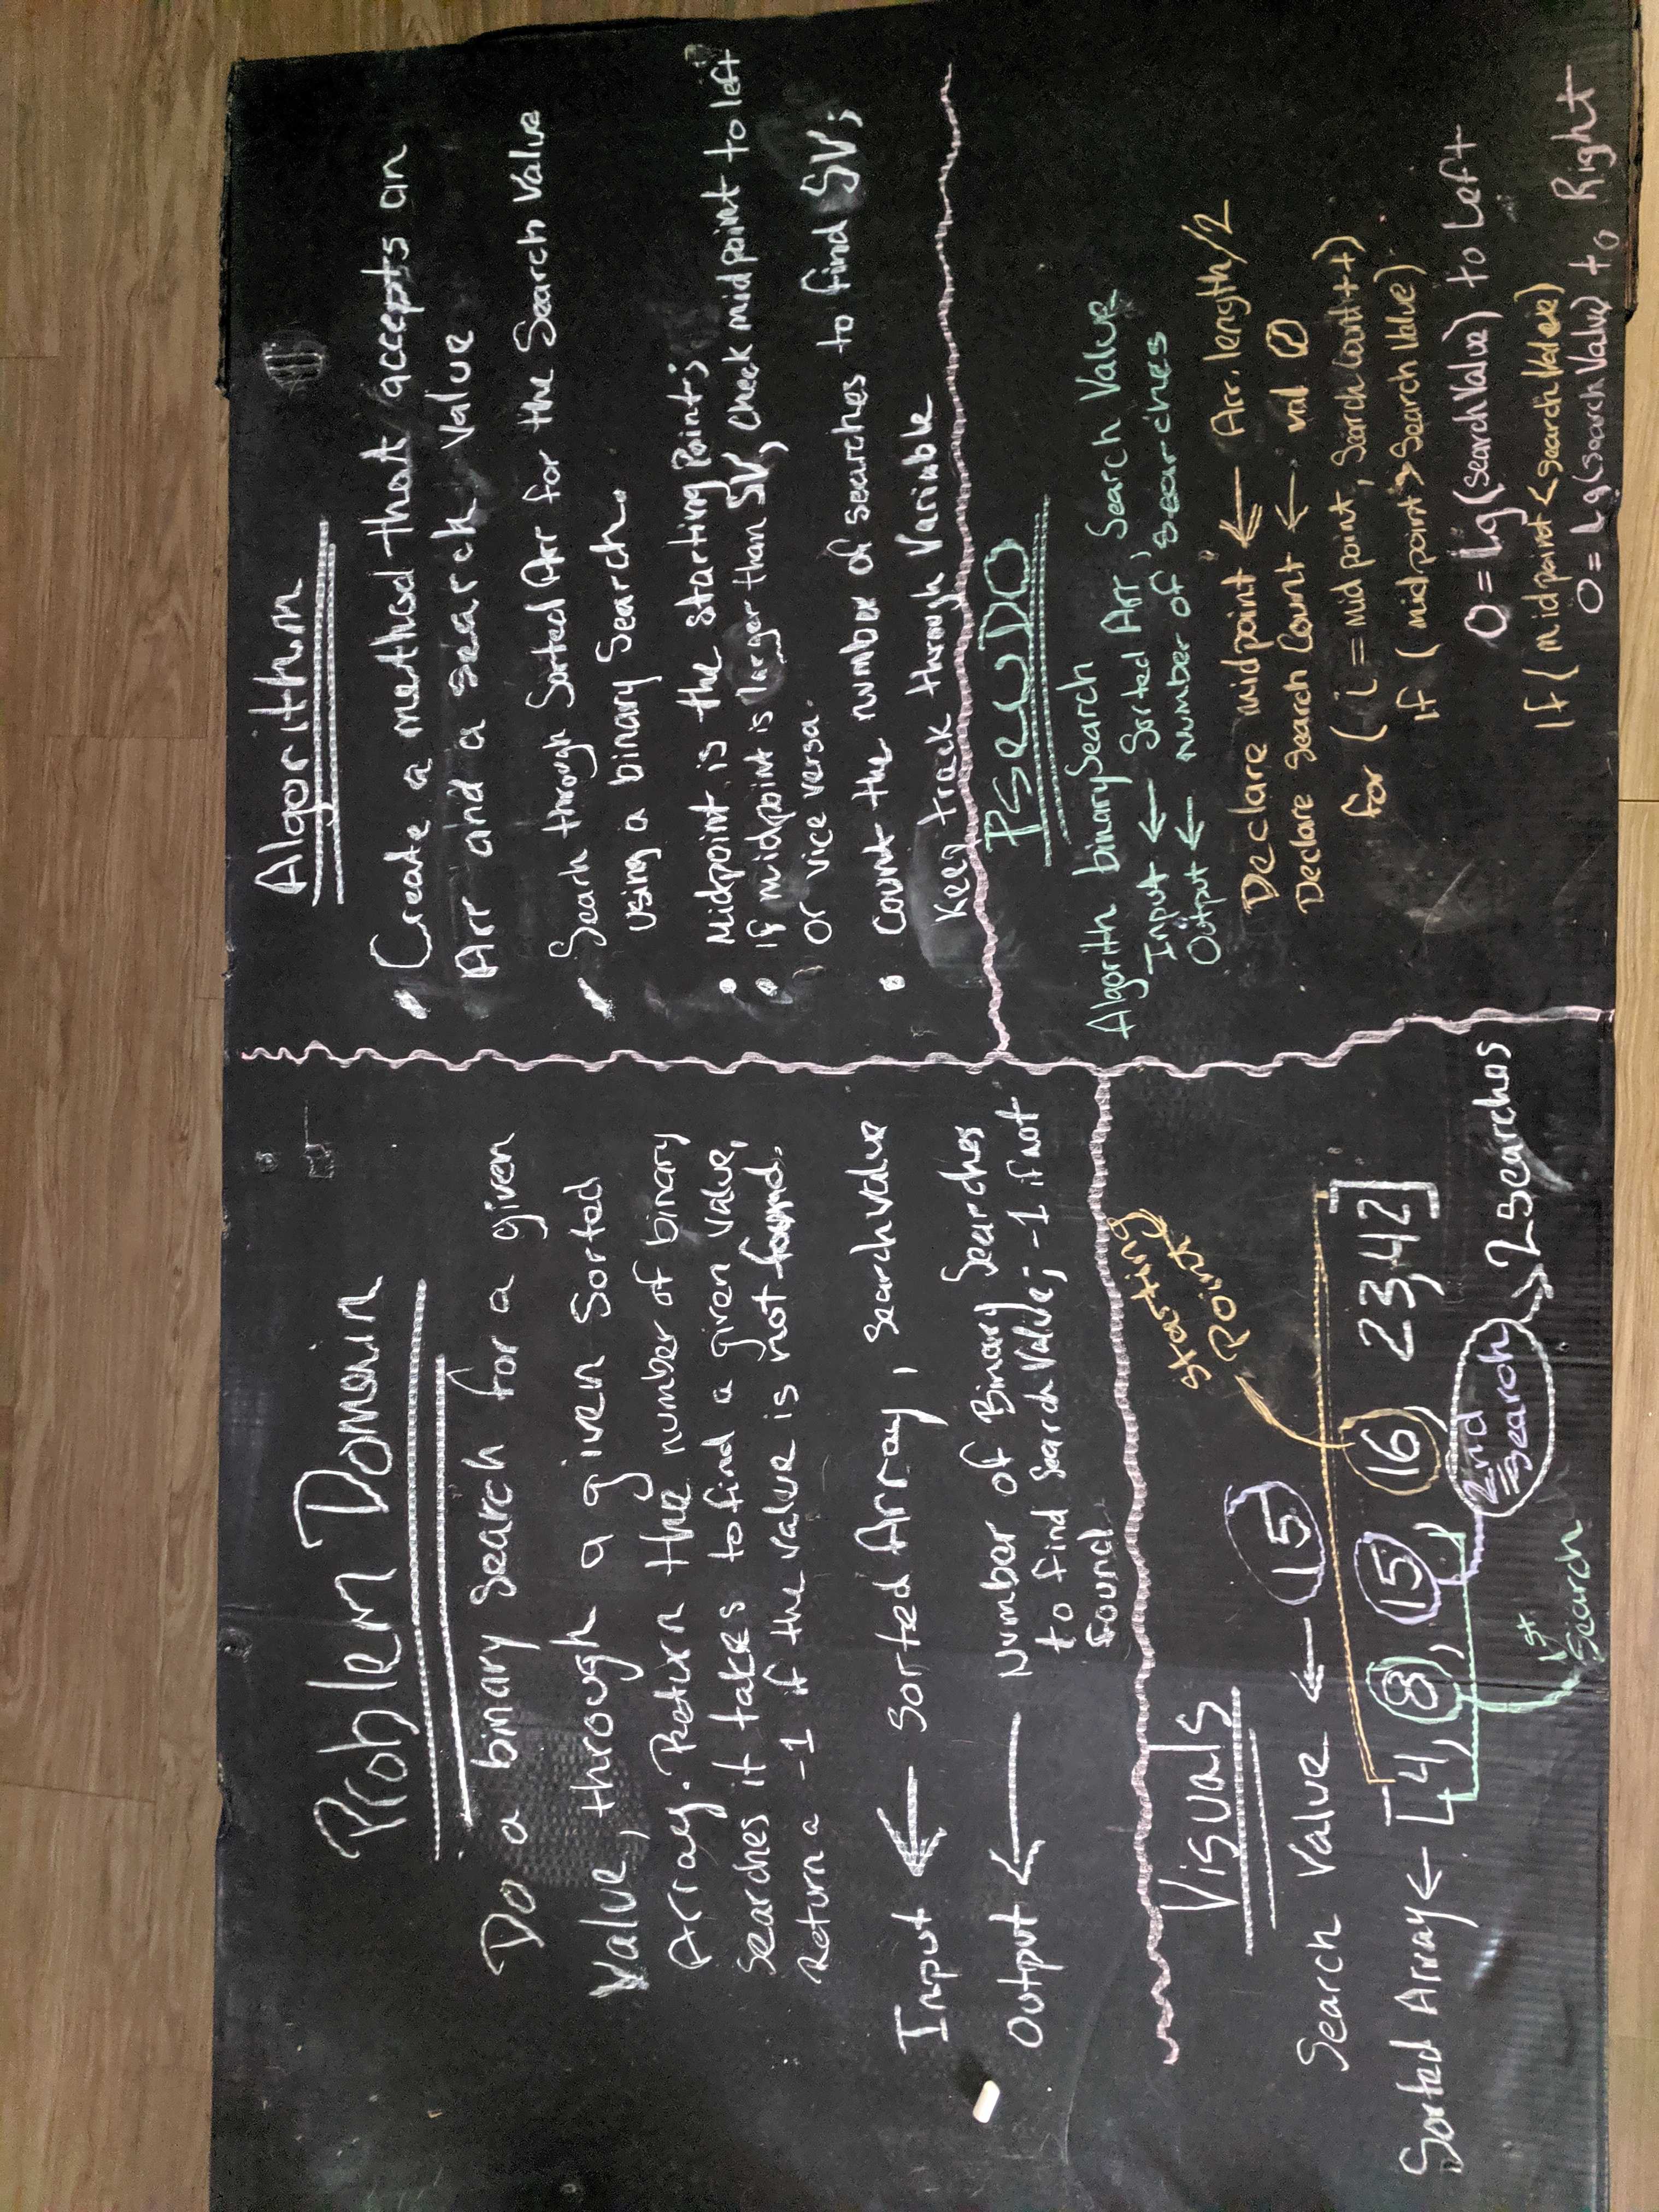 Problem Domain
Do a binary search for a given
Value, through a given Sorted
Array. Return the number of binary
Searches it takes to find a given value,
Return a -1 if the value is not found.
Input ← Sorted Array, searchvalue
Output ← Number of Binary Searches
to find Search Value; -1 if not
found
Visuals
Search Value ← 15
Starting
Point
Sorted Array ← [4, 8, 15, 16, 23, 42]
1st
Search
2nd
Search
2 Searches
Algorithm
Create a method that accepts an
Arr and a search value
Searh through Sorted Arr for the Search Value
using a binary Search.
• Midpoint is the starting Point;
• If midpoint is larger than SV, check midpoint to left
or vice versa.
• Count the number of searches to find SV;
Keep track through Variable
PSeuDO
Algorith binarySearch
Input ← Sorted Arr, Search Value
Output ← number of searches
Declare midpoint ← Arr.length/2
Declare Search Count ← val 0
for ( i = mid point, SearchCount++)
If ( midpoint > Search Value)
O = Lg(searchValue) to Left
If (midpoint < searchValue)
O = Lg(searchValue) to Right